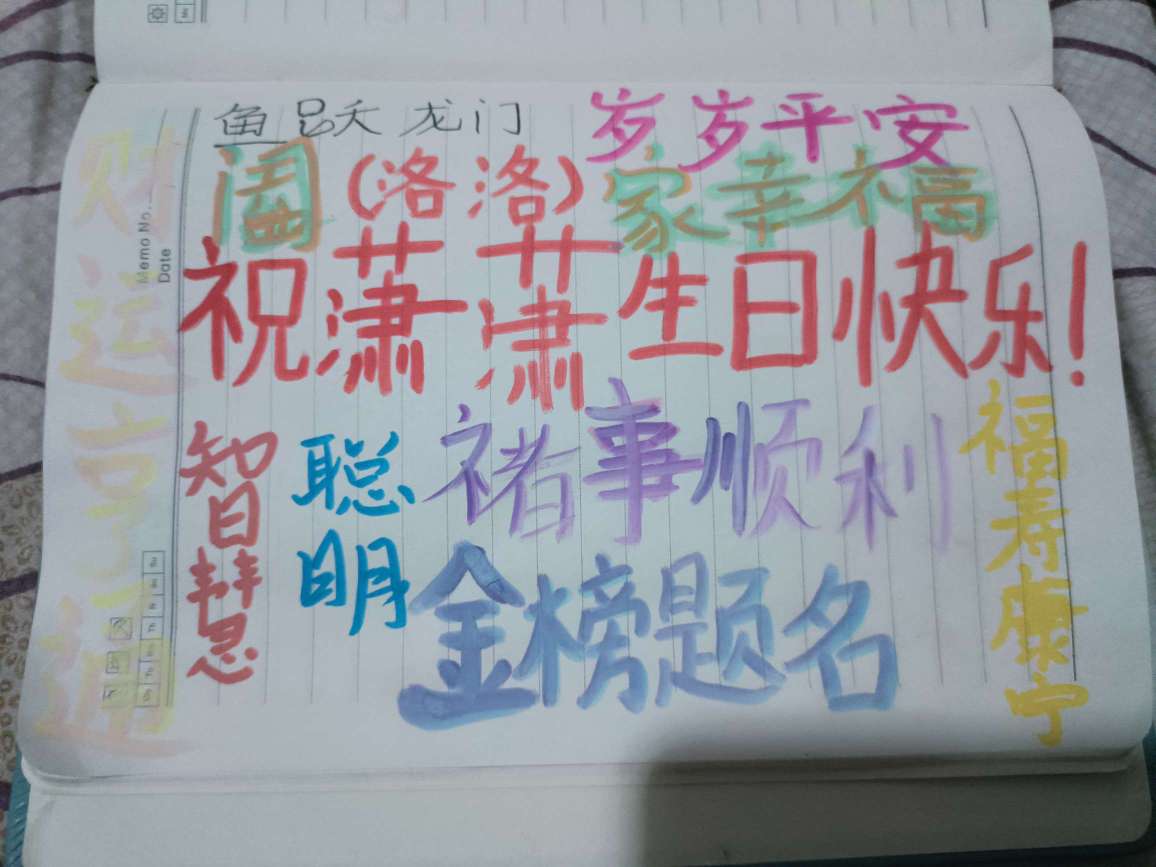 鱼跃龙门
岁岁平安
阖(洛洛)家幸福
祝潇潇生日快乐!
财运亨通
Memo No.
Date
智慧
聪明
褚事顺利
金榜题名
福寿康宁